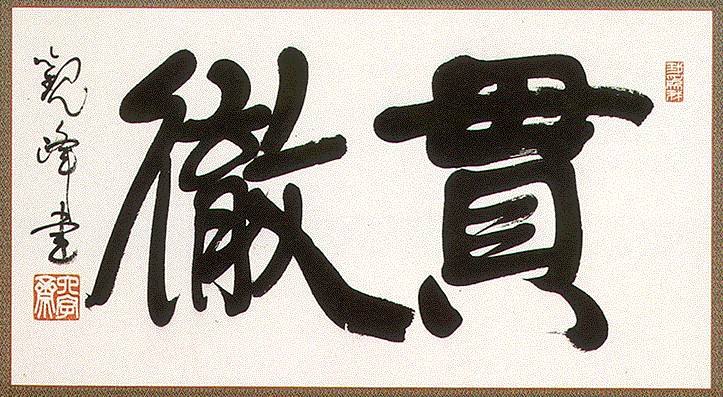 貫徹
観峰書